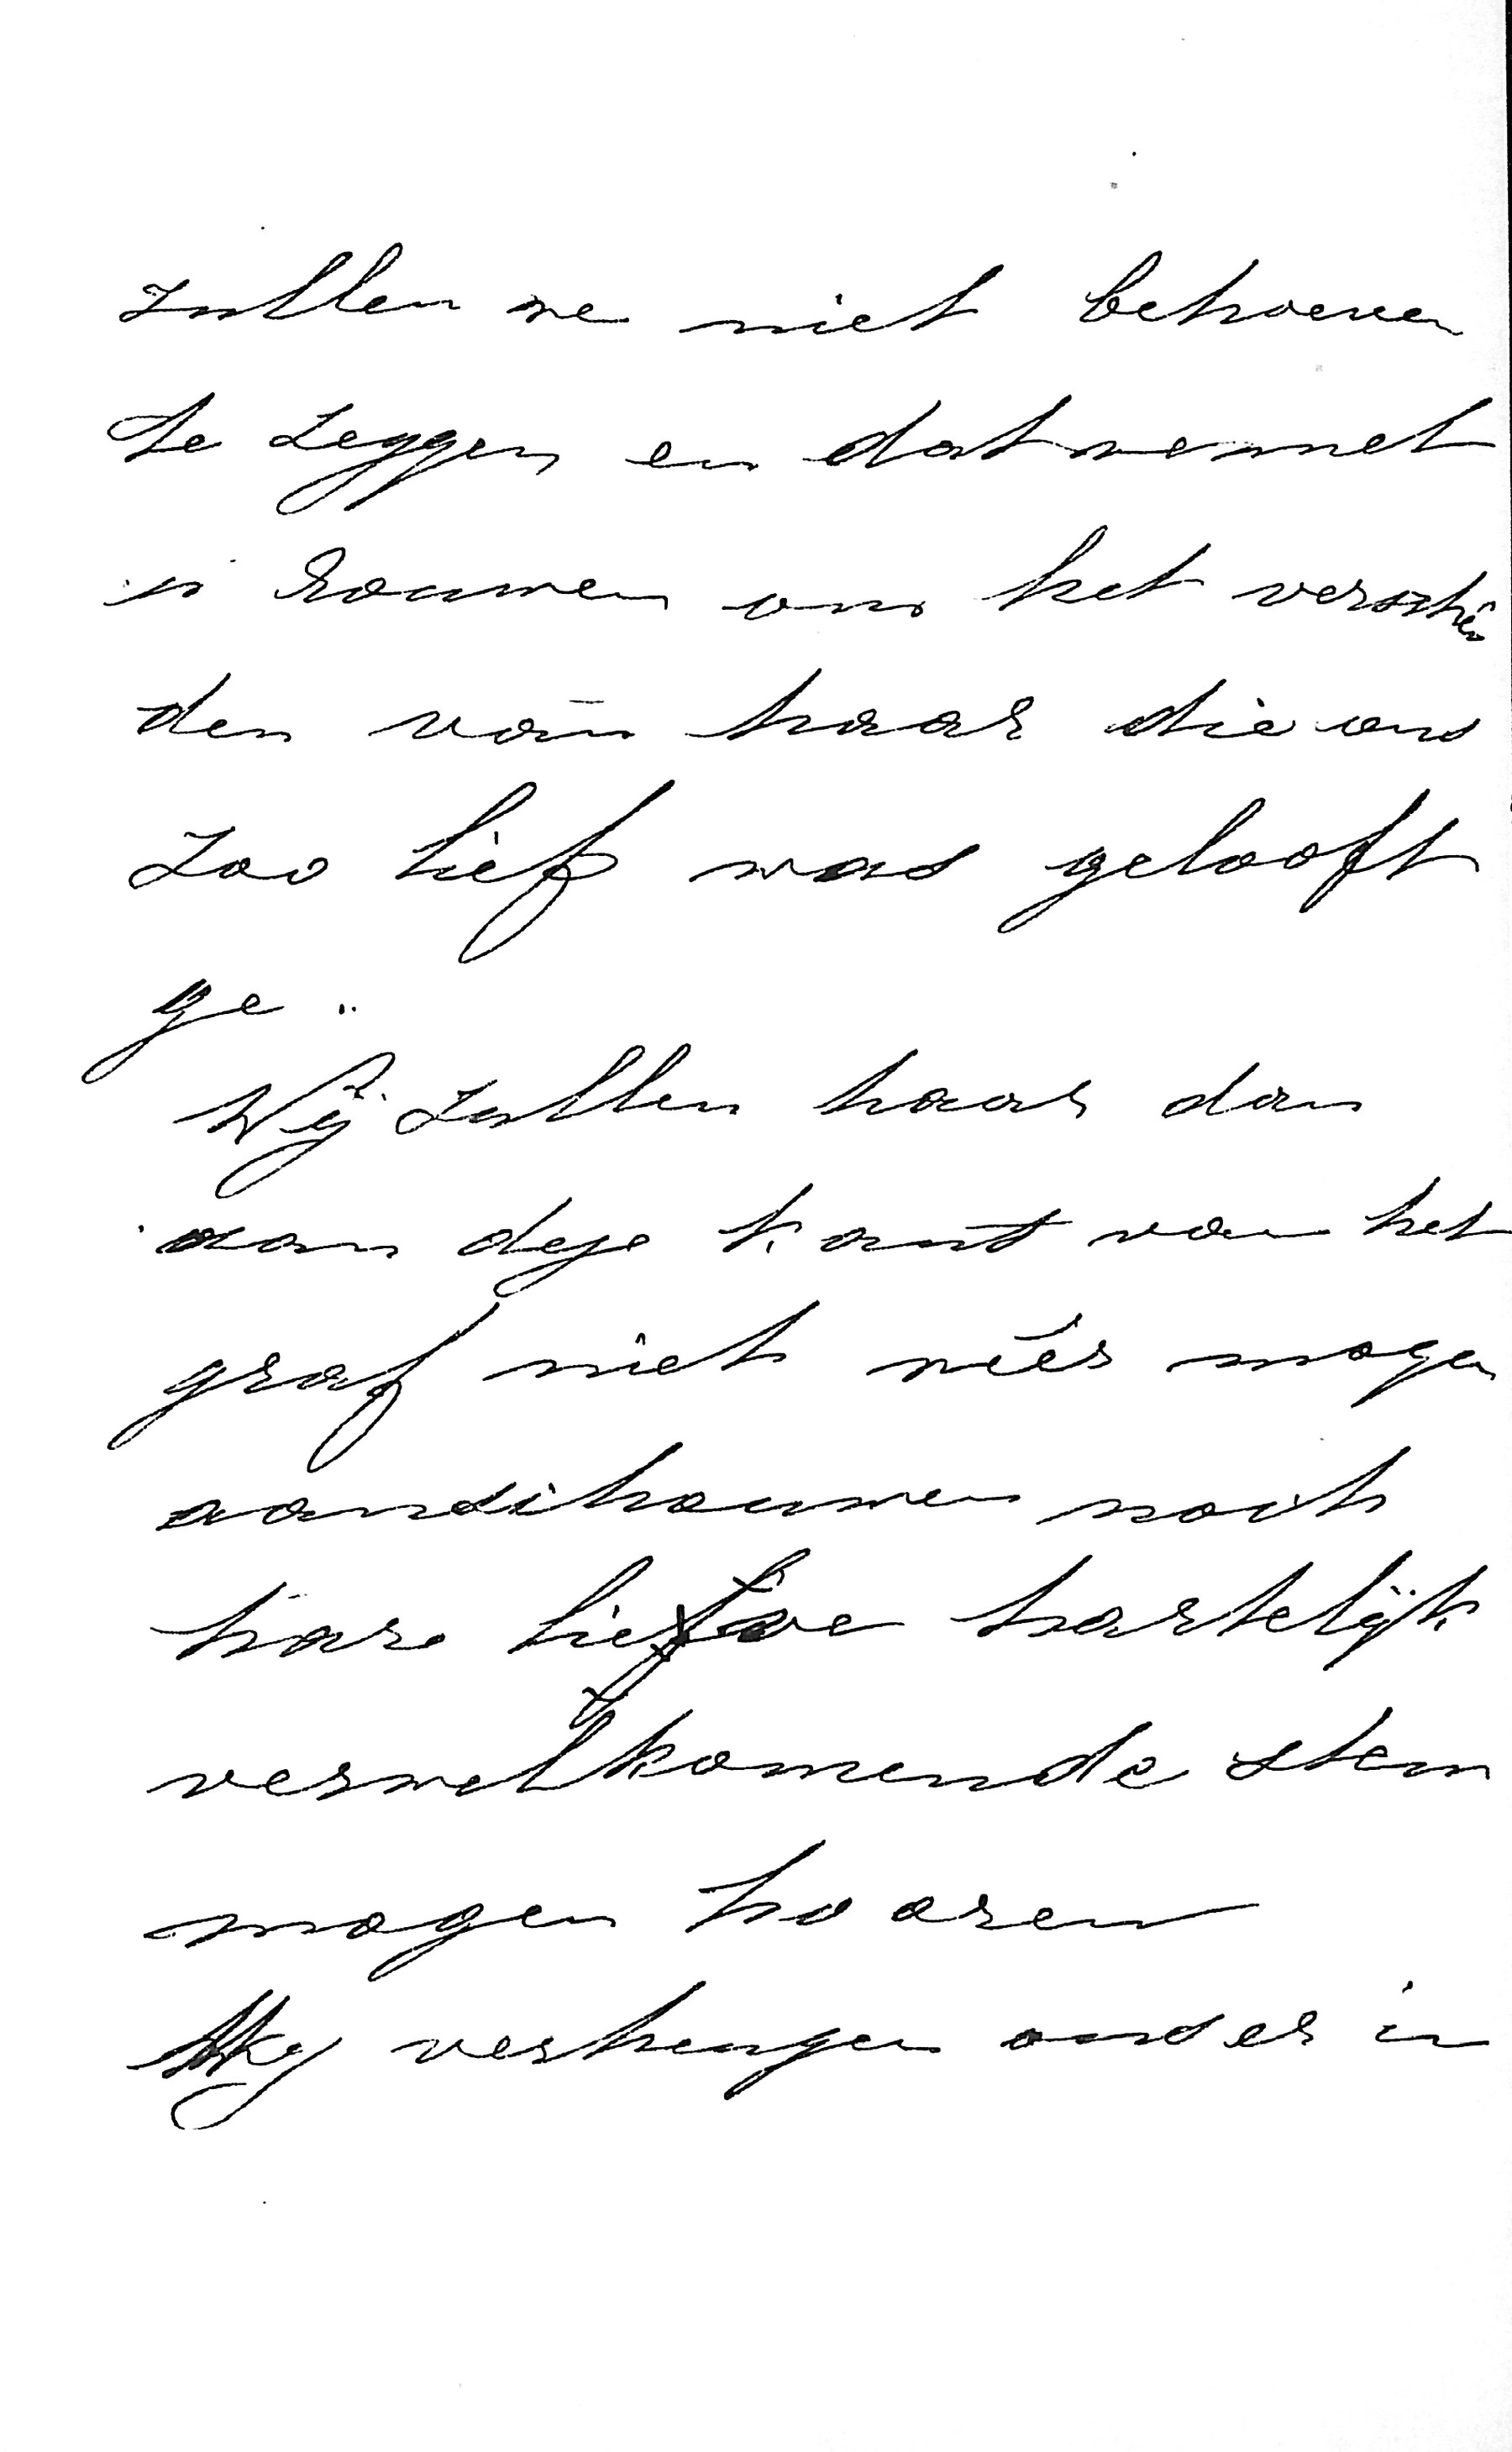 zullen we niet behoeven
te zeggen en dat we met
u rouwen om het verschei
den van haar die ons
zoo lief was gelooft
ge..
Wij zullen haar dan
aan deze kant van het
graf niet méér mogen
aanschouwen noch
hare lieve hartelijk
verwelkomende stem
mogen hooren
Wij verheugen ons er in